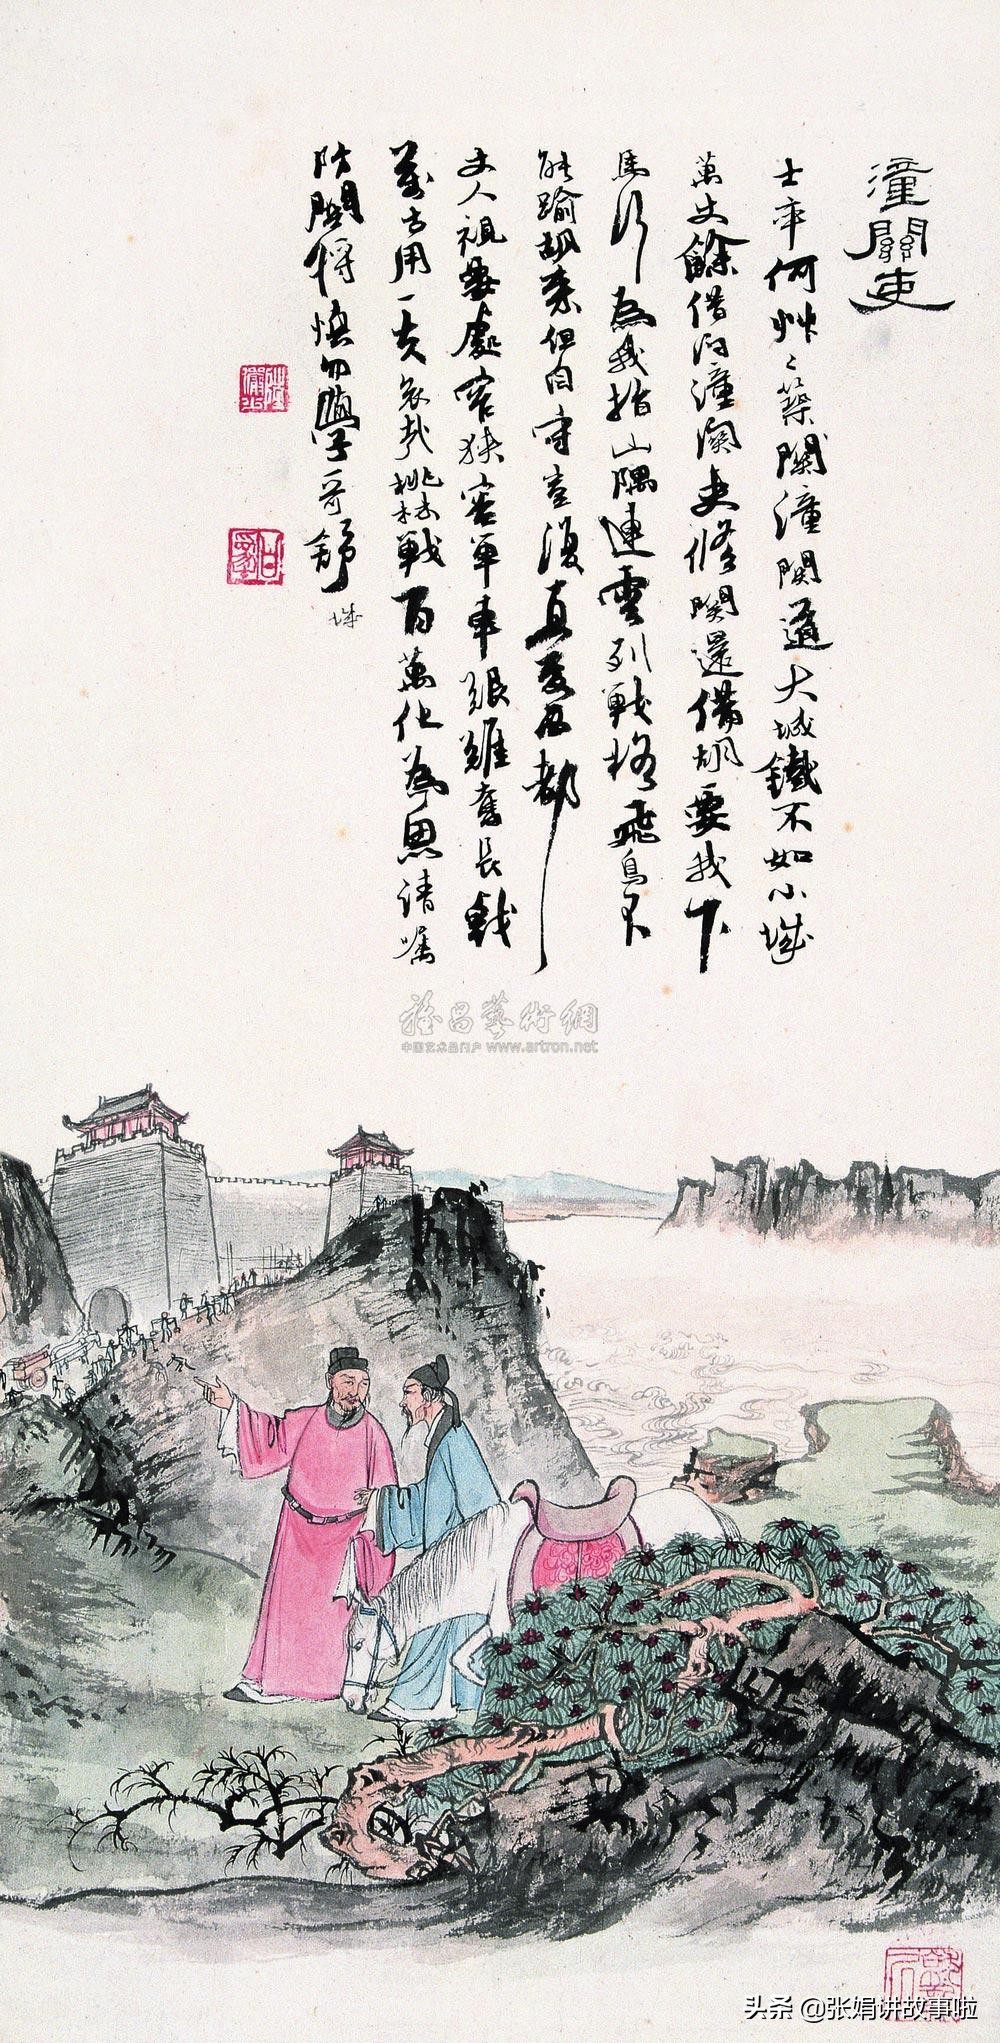 潼關吏
士卒何艸〻築關潼關道大城鐵不如小城
萬丈餘借問潼關吏修關還備胡要我下
馬行為我指山隅連雲列戰格飛鳥不
能踰胡來但自守豈復憂西都
丈人視要處窄狹容單車艱難奮長戟
萬古用一夫哀哉桃林戰百萬化為魚請囑
防關將慎勿學哥舒
雅昌藝術網
中国艺术品门户 www.artron.net
头条 @张娟讲故事啦